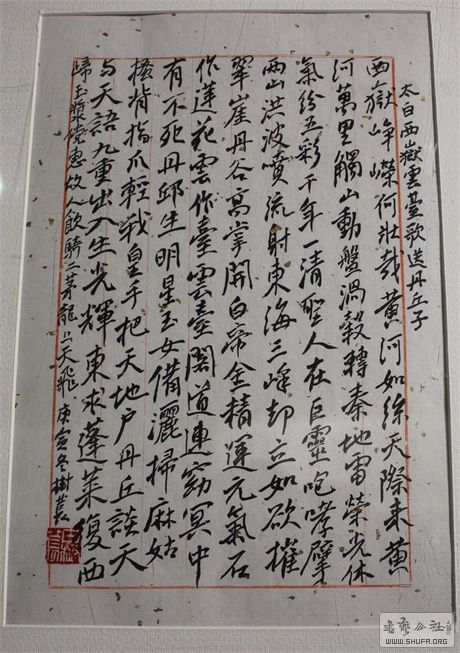 太白西嶽雲臺歌送丹丘子
西嶽崢嶸何壯哉黃河如絲天際來黃
河萬里觸山動盤渦轂轉秦地雷榮光休
氣紛五彩千年一清聖人在巨靈咆哮擘
兩山洪波噴流射東海三峰却立如欲摧
翠崖丹谷高掌開白帝金精運元氣石
作蓮花雲作臺雲臺閣道連窈冥中
有不死丹邱生明星玉女備灑掃麻姑
搔背指爪輕我皇手把天地户丹丘談天
与天語九重出入生光輝東求蓬萊復西
歸玉漿儻惠故人飲騎二茅龍上天飛 庚寅冬樹
WWW.SHUFA.ORG